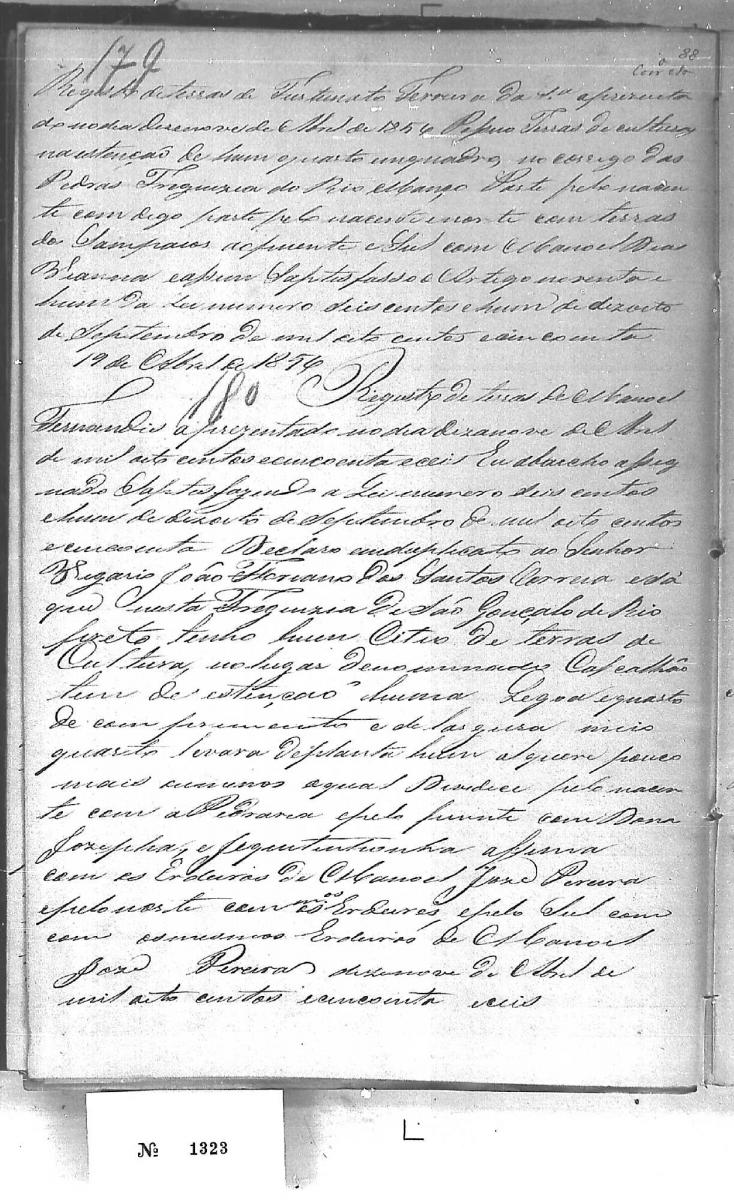 88
179
Registo de terras de Furtunato Ferreira da S.a aprezenta
do no dia dezenove de Abril de 1856 Posuo Terras de cultura
na istenção de hum quarto en quadro, no corrigo das
Pedras Freguizia do Rio Manço Parte pelo nacen
te com digo parte pelo nacente e norte com terras
dos Sampaios ao puente e Sul com Manoel Dias
Vianna e asim Saptisfasso o Artigo noventa e
hum da Lei numero seis centos e hum de dizoito
de Septembro de mil oito centos e cincoenta
19 de Abril de 1856
180 Registo de terras de Manoel
Fernandis aprezentado no dia dizanove de Abril
de mil oito centos e cincoenta e ceis Eu abaicho assig
nado Saptisfazendo a Lei numero seis centos
e hum de dizoito de Septembro de mil oito centos
e cincoenta Declaro em duplicato ao Senhor
Vigario João Floriano dos Santos Correia e Sá
que nesta Freguizia de São Gonçalo do Rio
Preto tenho hum Citio de terras de
Cultura, no lugar denominado Cascalhão
tem de estenção huma Legoa e quarto
de comprimento e de largura meio
quarto levara de planta hum alquere pouco
mais ou menos a qual Devidice pelo nacen
te com a Pedraria e pelo puente com Dona
Jozepha, e Jequitinhonha assima
com os Erdeiros de Manoel Joze Pereira
e pelo norte com os mos Erdeiros, e pelo Sul com
com os mesmos Erdeiros de Manoel
Joze Pereira dezenove de Abril de
mil oito centos e cincoenta e ceis
№ 1323